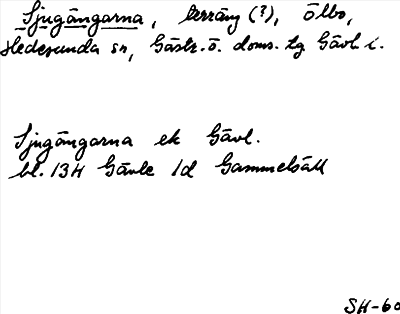 Sjugångarna, terräng (?), Ölbo,
Hedesunda sn, Gästr. ö. doms. tg Gävl. l.
Sjugångarna ek Gävl.
bl. 13H Gävle 1d Gammelsäll
SH-60